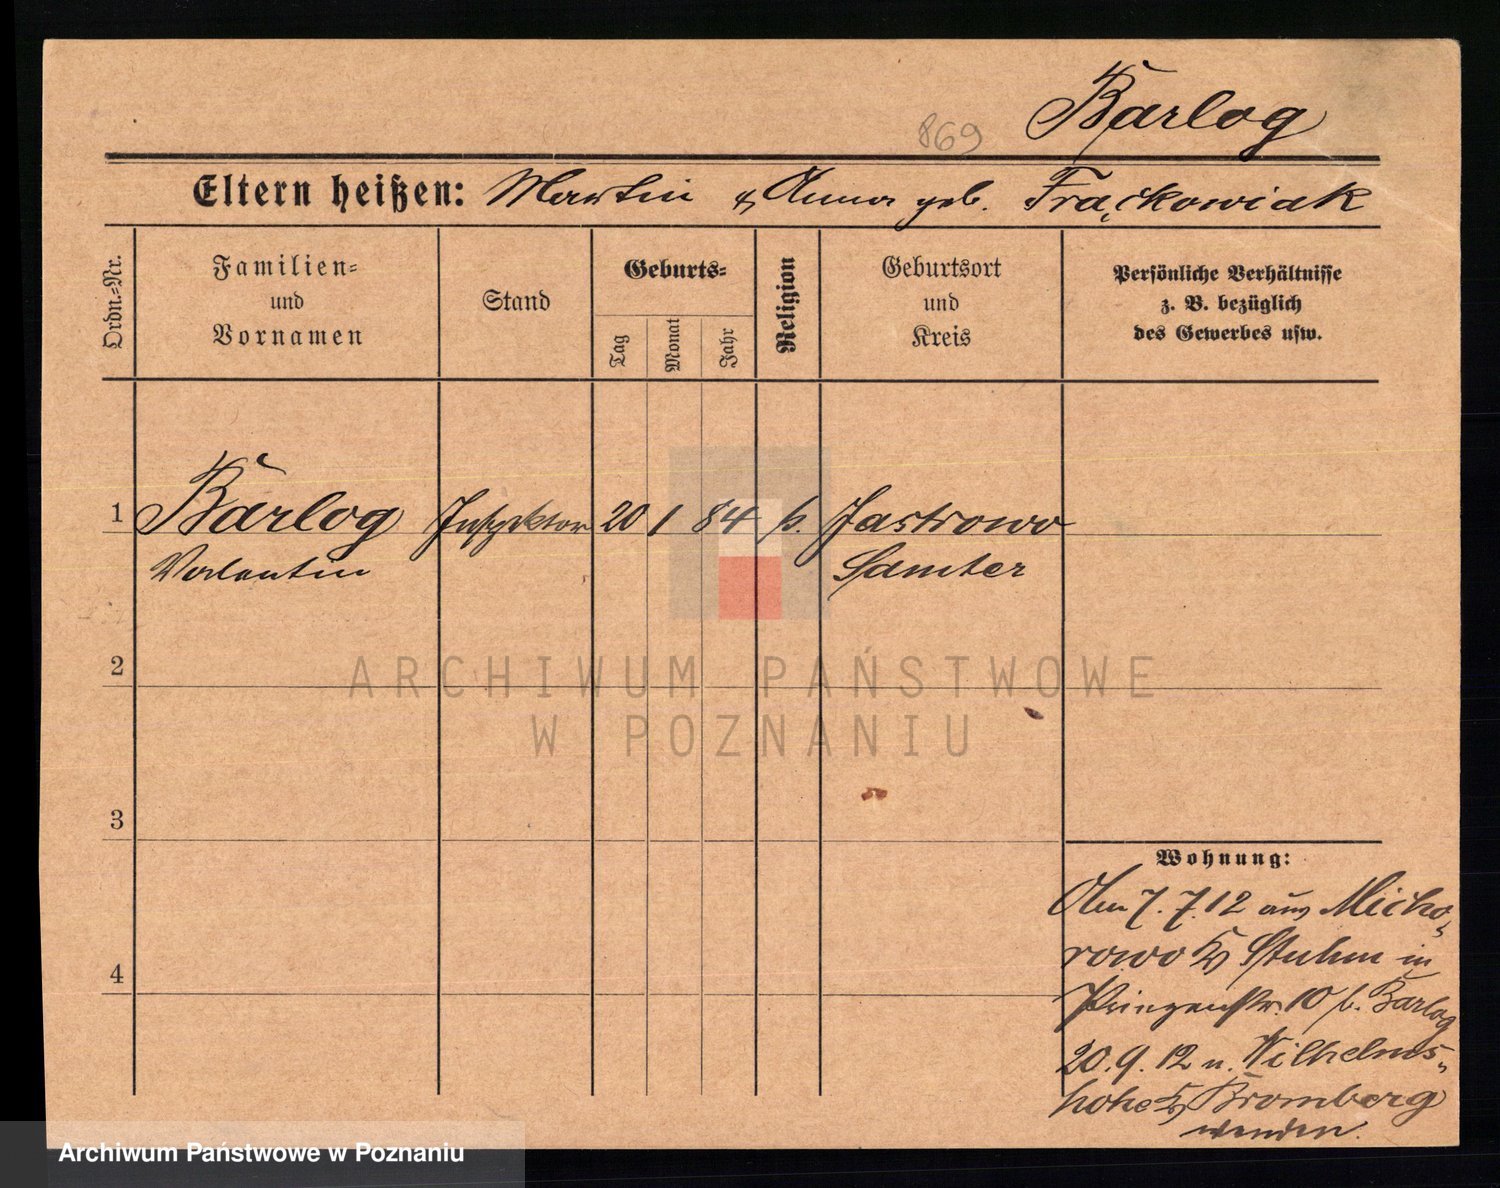 Barlog
869
Eltern heißen: Martin & Anna geb. Frąckowiak
Ordn.=Nr.
Familien=
und
Vornamen
Stand
Geburts=
Tag
Monat
Jahr
Religion
Geburtsort
und
Kreis
Persönliche Verhältnisse
z. B. bezüglich
des Gewerbes usw.
1 Barlog Inspektor 20 1 84 k. Jastrowo
Valentin Samter
ARCHIWUM PAŃSTWOWE
W POZNANIU
2
3
4
Wohnung:
Am 7. 7. 12 aus Micho-
rowo Kr Stuhm in
Prinzenstr. 10 b. Barlog
20. 9. 12 n. Wilhelms-
höhe Kr Bromberg
wenden.
Archiwum Państwowe w Poznaniu